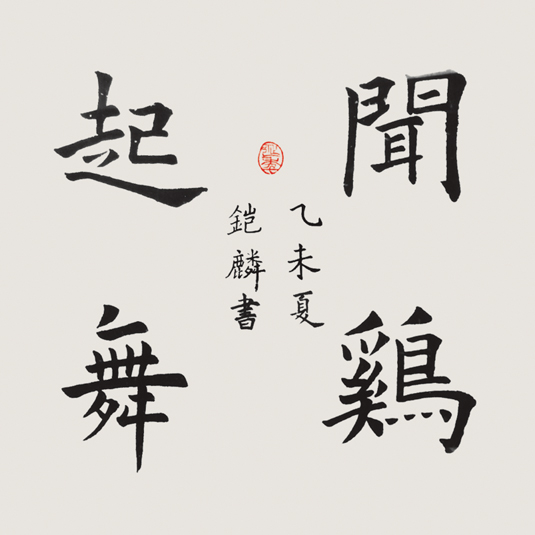 聞鷄
起舞
乙未夏
鎧麟書